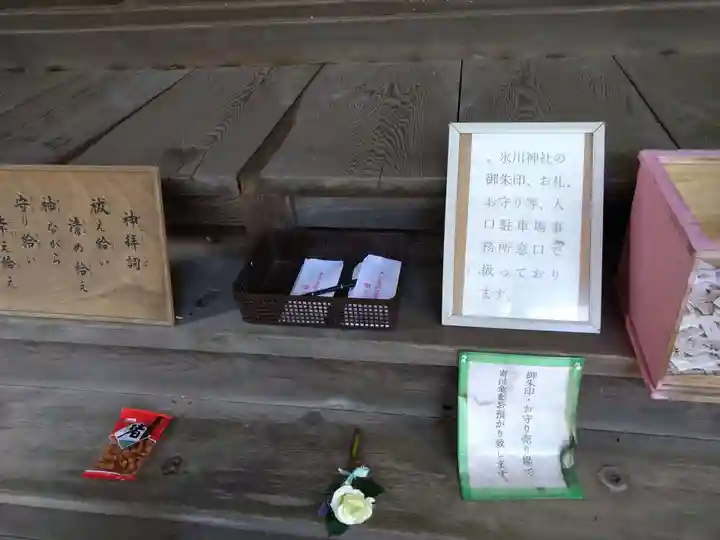 神拝詞
祓え給い
清め給え
神ながら
守り給い
幸え給え
氷川神社の
御朱印、お札、
お守り等、人
口駐車場事
務所窓口で
扱っており
ます。
御朱印・お守り売り場で、
寄付金をお預かり致します。